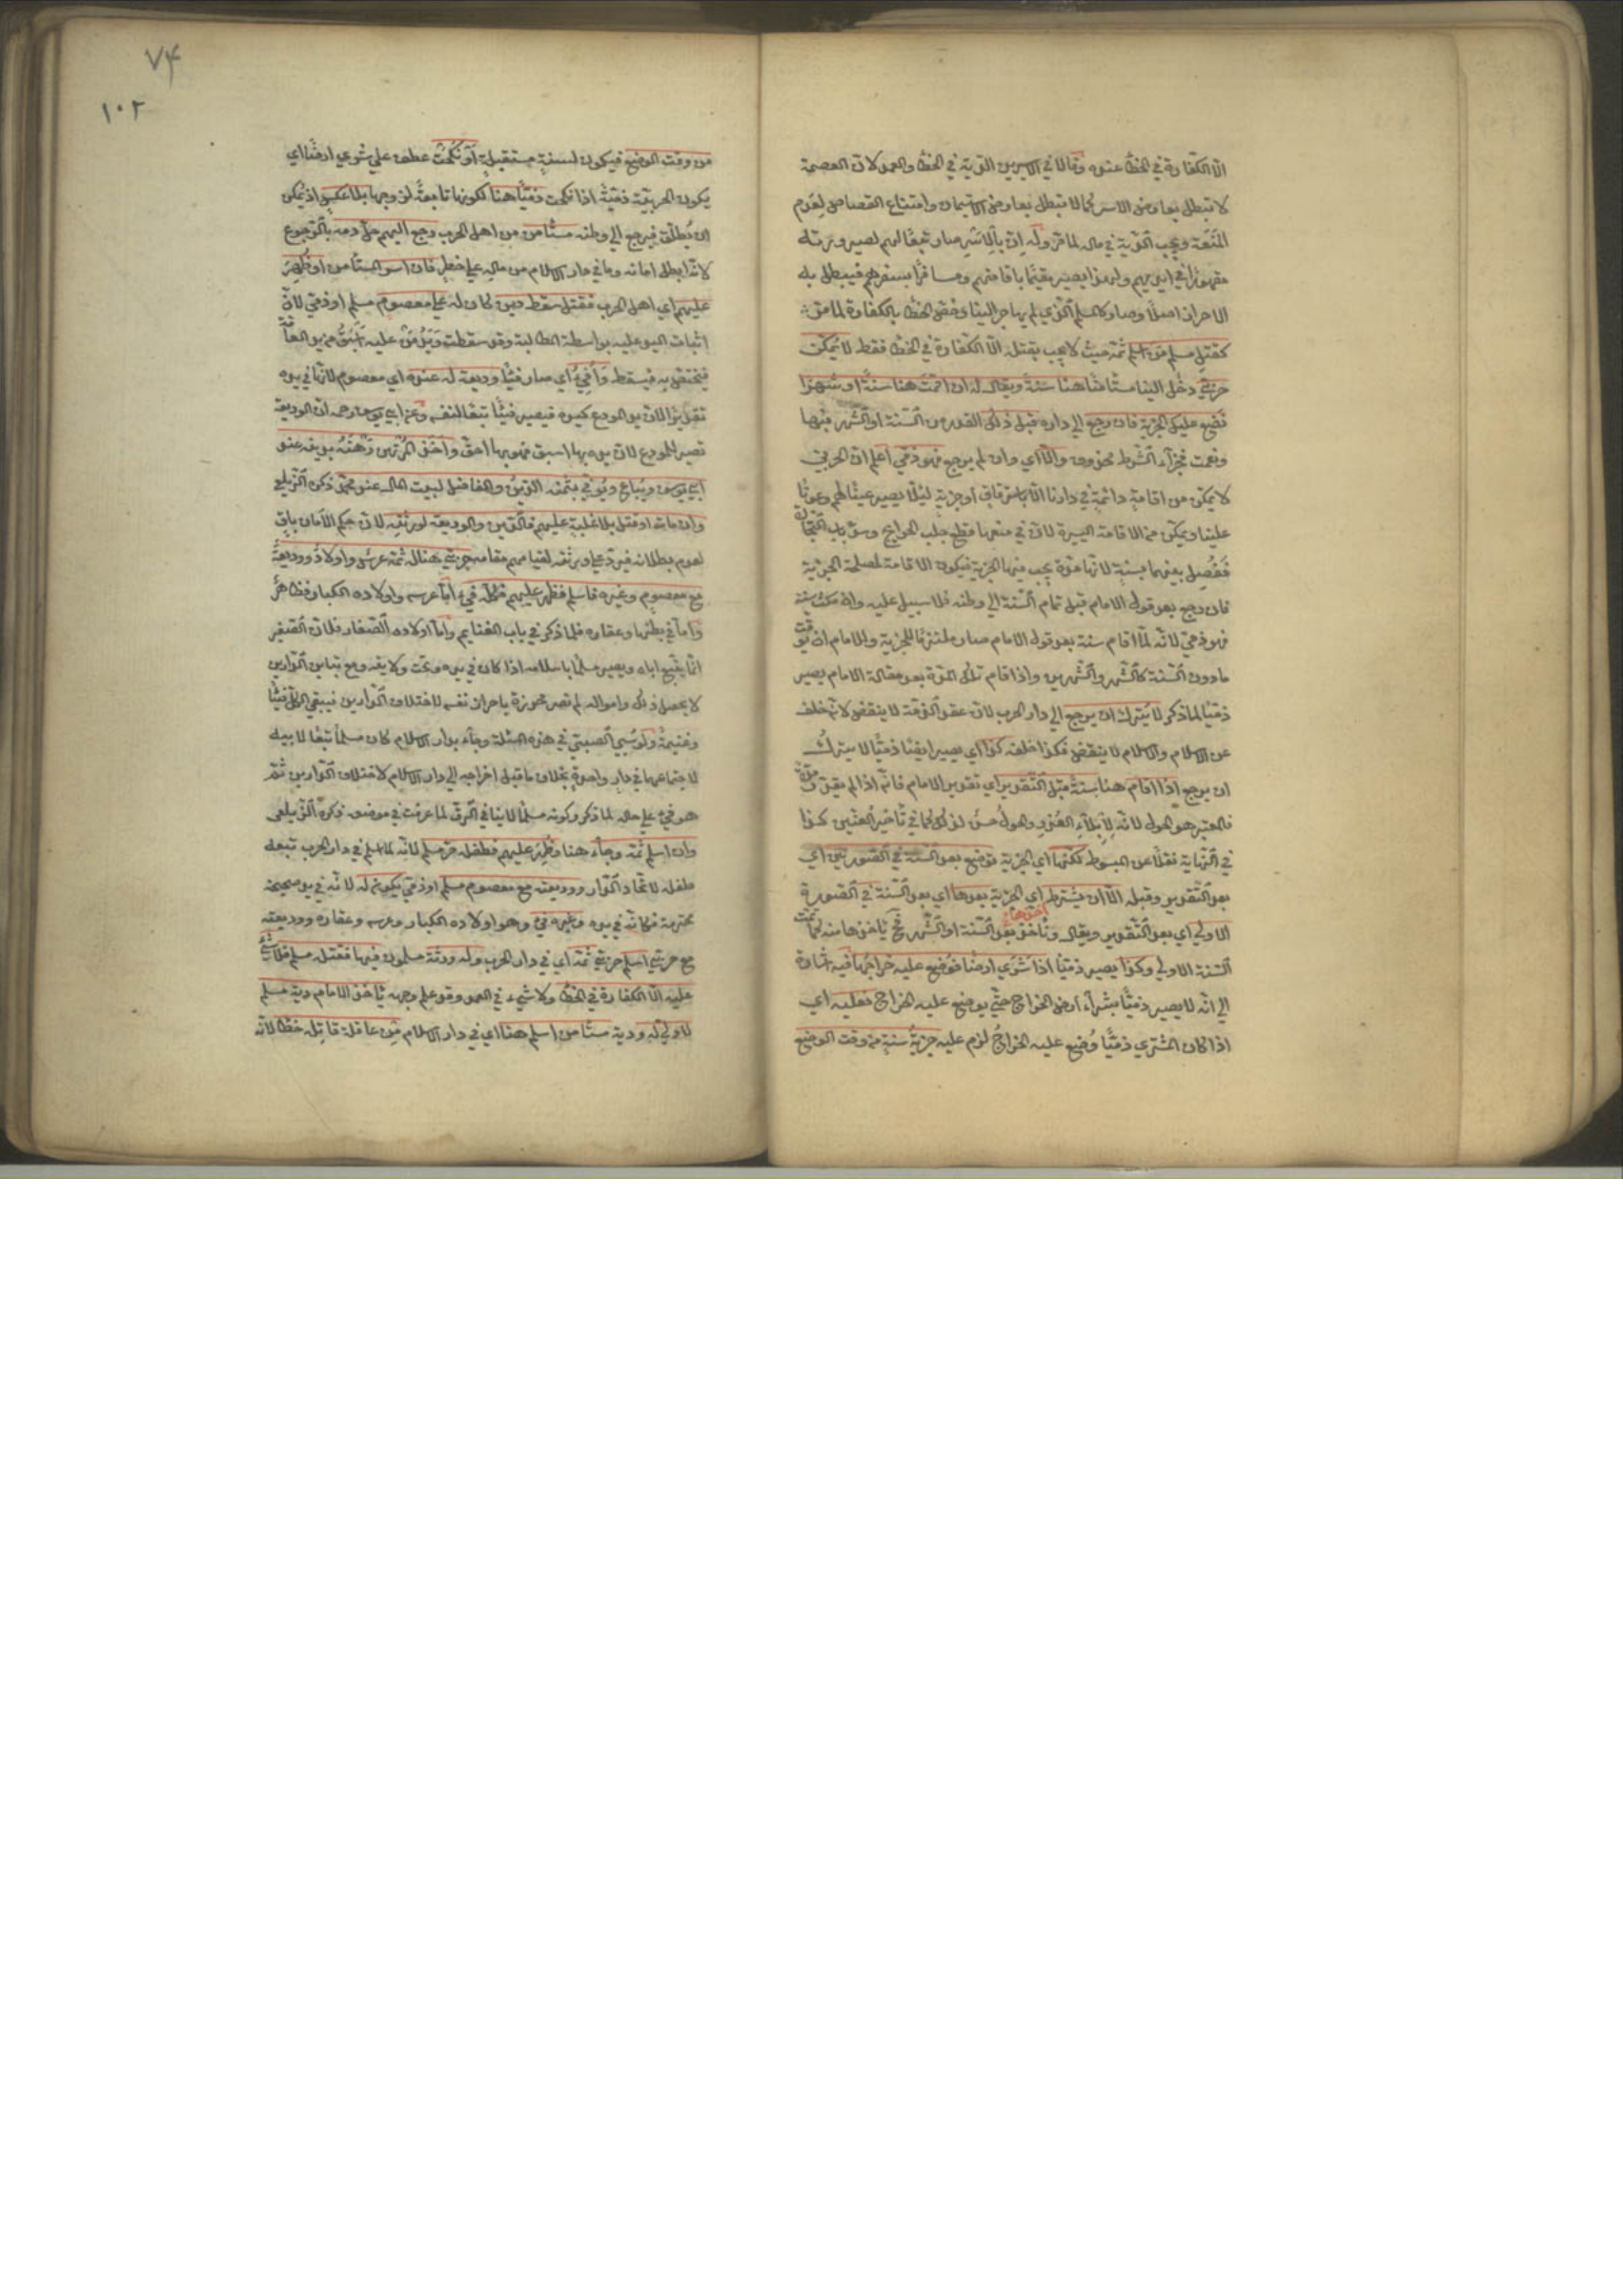 الا الكفارة في الخطأ عنده وقالا في الاسيرين الدية في الخطأ والعمد لان العصمة
لا تبطل بعارض الاسر كما لا تبطل بعارض الاستيمان وامتناع القصاص لعدم
المنعة ويجب الدية في ماله لما مر وله ان بالاسر صار تبعا لهم لصيرورته
مقهورا في ايديهم ولهذا يصير مقيما باقامتهم ومسافرا بسفرهم فيبطل به
الاحراز اصلا وصار كالمسلم الذي لم يهاجر الينا وخص الخطأ بالكفارة لما مر
كقتل مسلم من اسلم ثمة حيث لا يجب بقتله الا الكفارة في الخطأ فقط لا يمكن
حربي دخل الينا مستأمنا هنا سنة ويقال له ان اقمت هنا سنة او شهرا
نضع عليك الجزية فان رجع الى داره قبل ذلك القدر من السنة او الشهر فبها
ونعمت فجزاء الشرط محذوف والا اي وان لم يرجع فهو ذمي اعلم ان الحربي
لا يمكن من اقامة دائمة في دارنا الا باسترقاق او جزية لئلا يصير عينا لهم وعونا
علينا ويمكن من الاقامة اليسيرة لان في منعها قطع جلب الحوايج وسد باب التجارة
ففصل بينهما بسنة لانها مدة يجب فيها الجزية فيكون الاقامة لمصلحة الجزية
فان رجع بعد قول الامام قبل تمام السنة الى وطنه فلا سبيل عليه وان مكث سنة
فهو ذمي لانه لما اقام سنة بعد قول الامام صار ملتزما للجزية وللامام ان يوقت
ما دون السنة كالشهر والشهرين واذا اقام تلك المدة بعد مقالة الامام يصير
ذميا لما ذكر لا يترك ان يرجع الى دار الحرب لان عقد الذمة لا ينقض لانه خلف
عن الاسلام والاسلام لا ينقض فكذا خلفه كذا اي يصير ايضا ذميا لا يترك
ان يرجع اذا اقام هنا سنة قبل التقدير اي تقدير الامام فانه اذا لم يقدر مدة
فالمعتبر هو الحول لانه لابلاء العذر والحول حسن لذلك كما في تأخير العنين كذا
في النهاية نقلا عن المبسوط لكنها اي الجزية توضع بعد السنة في الصورتين اي
بعد التقدير وقبله الا ان يشترط اي الجزية بعدها اي بعد السنة في الصورة
الاولى اي بعد التقدير ويقال ونأخذ بعد السنة او الشهر فح يأخذها منه كما تمت
السنة الاولى وكذا يصير ذميا اذا شرى ارضا فوضع عليه خراجها فيه اشارة
الى انه لا يصير ذميا بشراء ارض الخراج حتى يوضع عليه الخراج فعليه اي
اذا كان المشتري ذميا وضع عليه الخراج لزم عليه جزية سنة من وقت الوضع
٧٤
١٠٢
من وقت الوضع فيكون لسنة مستقبلة او نكحت عطف على شرى ارضا اي
يكون الحربية ذمية اذا نكحت ذميا هنا لكونها تابعة لزوجها بلا عكس اذ يمكن
ان يطلق فيرجع الى وطنه مستأمن من اهل الحرب رجع اليهم حل دمه بالرجوع
لانه ابطل امانه وما في دار الاسلام من ماله على خطر فان اسر المستأمن او ظهر
عليهم اي اهل الحرب فقتل سقط دين كان له على معصوم مسلم او ذمي لان
اثبات اليد عليه بواسطة المطالبة وقد سقطت ويد من عليه اسبق من يد العامة
فيختص به فيسقط وافيء اي صار فيئا وديعة له عنده اي معصوم لانها في يده
تقديرا لان يد المودع كيده فيصير فيئا تبعا لنفسه وعن ابي يوسف رحمه ان الوديعة
تصير للمودع لان يده بها اسبق فهو بها احق واخذ المرتهن رهنه بدينه عند
ابي يوسف ويباع ويوفي بثمنه الدين والفاضل لبيت المال عند محمد ذكره الزيلعي
وان مات او قتل بلا غلبة عليهم فالدين والوديعة لورثته لان حكم الامان باق
لعدم بطلانه فيرد على ورثته لقيامهم مقامه حربي هنا له ثمة عرس واولاد ووديعة
مع معصوم وغيره فاسلم فظهر عليهم فكله فيء اما عرسه واولاده الكبار فظاهر
واما في بطنها وعقاره فلما ذكر في باب الغنايم واما اولاده الصغار فلان الصغير
انما يتبع اباه ويصير مسلما باسلامه اذا كان في يده وتحت ولايته ومع تباين الدارين
لا يحصل ذلك واموال لم تصر محرزة باحراز نفسه لاختلاف الدارين فيبقى الكل فيئا
وغنيمة ولو سبي الصبي في هذه المسئلة وجاء بدار الاسلام كان مسلما تبعا لابيه
لاجتماعهما في دار واحدة بخلاف ما قبل اخراجه الى دار الاسلام لاختلاف الدارين ثم
هو فيء على حاله لما ذكر وكونه مسلما لا ينافي الرق لما عرفت في موضعه ذكره الزيلعي
وان اسلم ثمة وجاء هنا وظهر عليهم فطفله حر مسلم لانه لما اسلم في دار الحرب تبعه
طفله لاتحاد الدار ووديعته مع معصوم مسلم او ذمي يكون له لانه في يد صحيحة
محترمة فكانه في يده وغيره فيء وهو اولاده الكبار وعرسه وعقاره ووديعته
مع حربي اسلم حربي ثمة اي في دار الحرب وله ورثة مسلمون فيها فقتله مسلم فلا شيء
عليه الا الكفارة في الخطأ ولا شيء في العمد وقد علم وجهه يأخذ الامام دية مسلم
لا ولي له ودية مستأمن اسلم هنا اي في دار الاسلام من عاقلة قاتله خطأ لانه